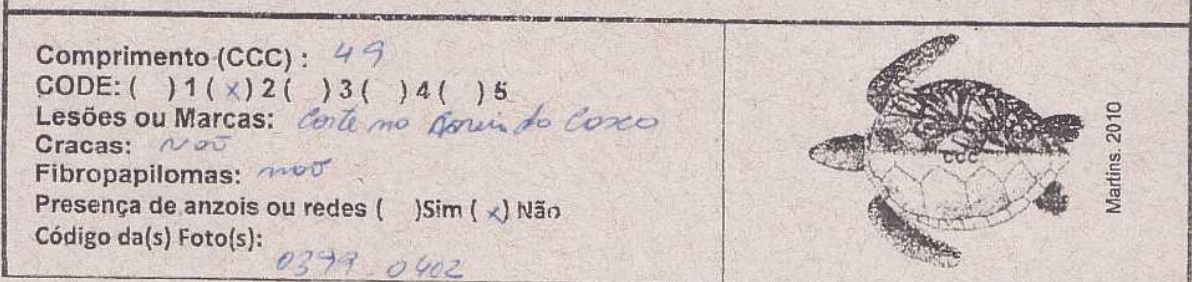 Comprimento (CCC) : 49
CODE: ( ) 1 ( x ) 2 ( ) 3 ( ) 4 ( ) 5
Lesões ou Marcas: Corte no do Casco
Cracas: Não
Fibropapilomas: não
Presença de anzois ou redes ( )Sim ( x ) Não
Código da(s) Foto(s):
0399 0402
CCC
Martins. 2010